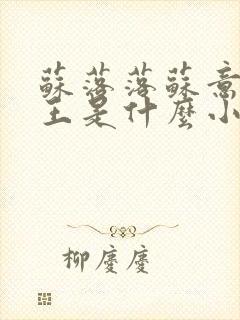 蘇落落蘇意
王是什麼小
柳慶慶